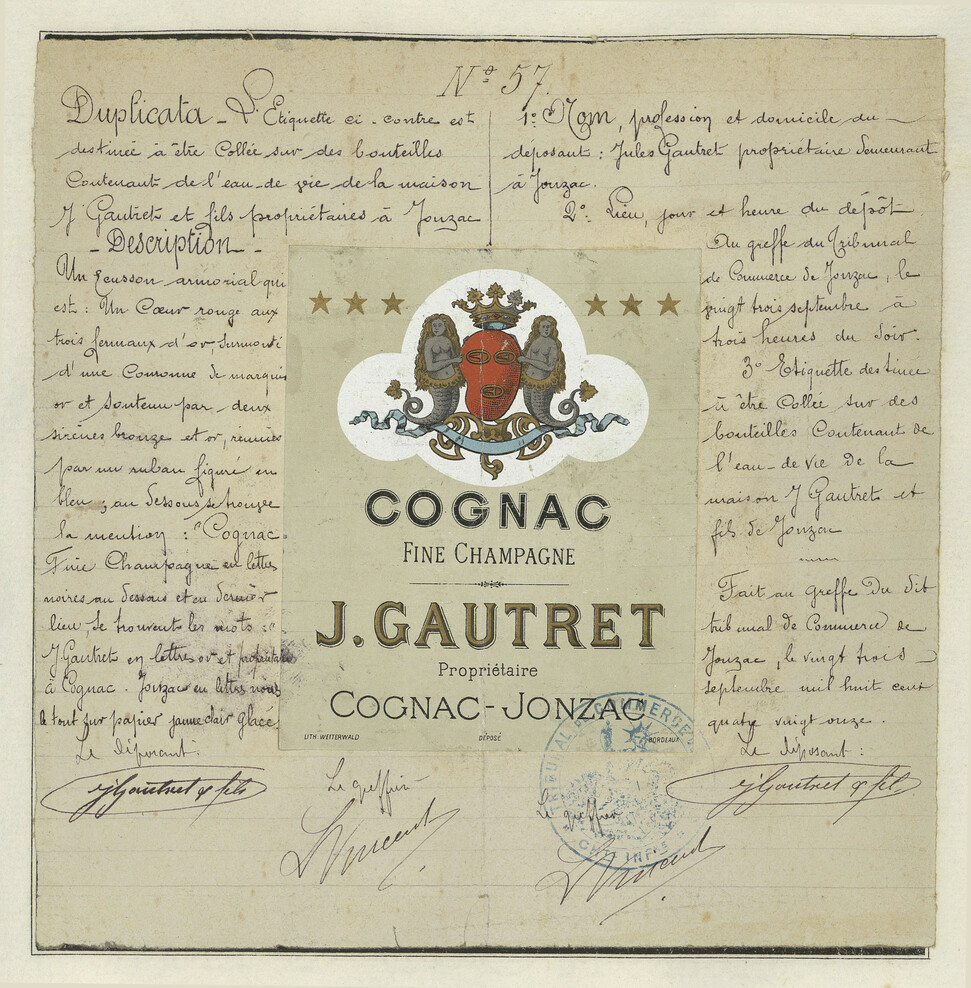 N° 57.
Duplicata - L'Etiquette ci-contre est
destinée à être Collée sur des bouteilles
Contenant de l'eau-de vie de la maison
J Gautret et fils propriétaires à Jonzac
- Description -
Un Ecusson armorial qui
est : Un Cœur rouge aux
trois fermaux d'or, surmonté
d'une Couronne de marquis
or et soutenu par deux
sirènes bronze et or, réunies
par un ruban figuré en
bleu ; au dessous se trouve
la mention : "Cognac
Fine Champagne en lettres
noires au dessous et en dernier
lieu, se trouvent les mots :
J Gautret en lettres or et propriétaire
à Cognac. Jonzac en lettres noires
le tout sur papier jaune clair glacé
Le déposant :
J Gautret & fils
Le greffier
Vincent
1° Nom, profession et domicile du
deposant : Jules Gautret propriétaire Demeurant
à Jonzac.
2° Lieu, jour et heure du dépôt
Au greffe du Tribunal
de Commerce de Jonzac, le
vingt trois septembre à
trois heures du Soir.
3° Etiquette destinée
à être Collée sur des
bouteilles Contenant de
l'eau-de vie de la
maison J Gautret et
fils de Jonzac
Fait au greffe Du dit
tribunal de Commerce de
Jonzac, le vingt trois
septembre mil huit cent
quatre vingt onze.
Le déposant :
J Gautret & fils
Le greffier
Vincent
COGNAC
FINE CHAMPAGNE
J. GAUTRET
Propriétaire
COGNAC-JONZAC
LITH. WETTERWALD
DÉPOSÉ
BORDEAUX
TRIBUNAL DE COMMERCE DE